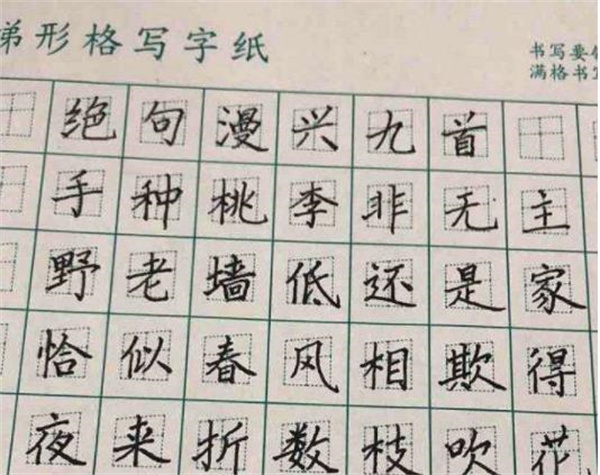 梯形格写字纸
书写要
满格书写
绝句漫兴九首
手种桃李非无主
野老墙低还是家
恰似春风相欺得
夜来折数枝吹花